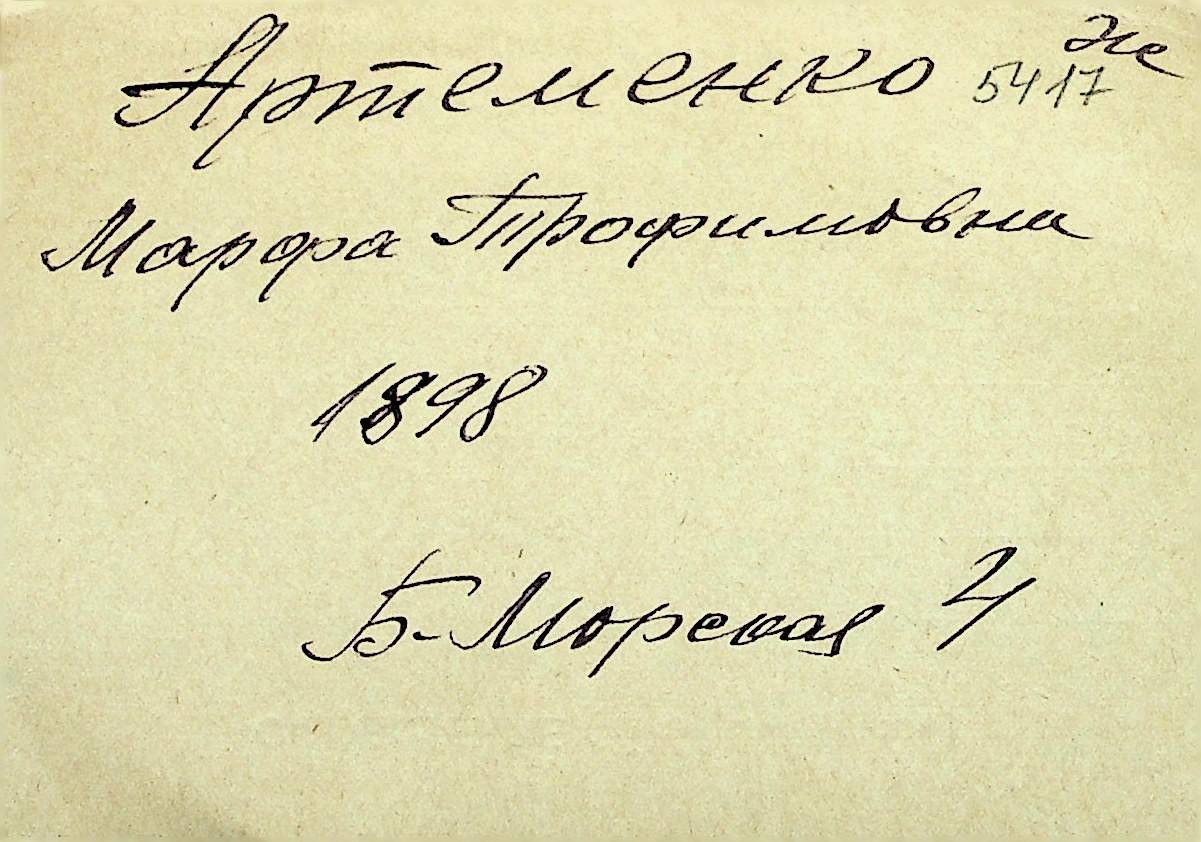 Артеменко 5417
Марфа Трофимовна
1898
Б-Морская 4